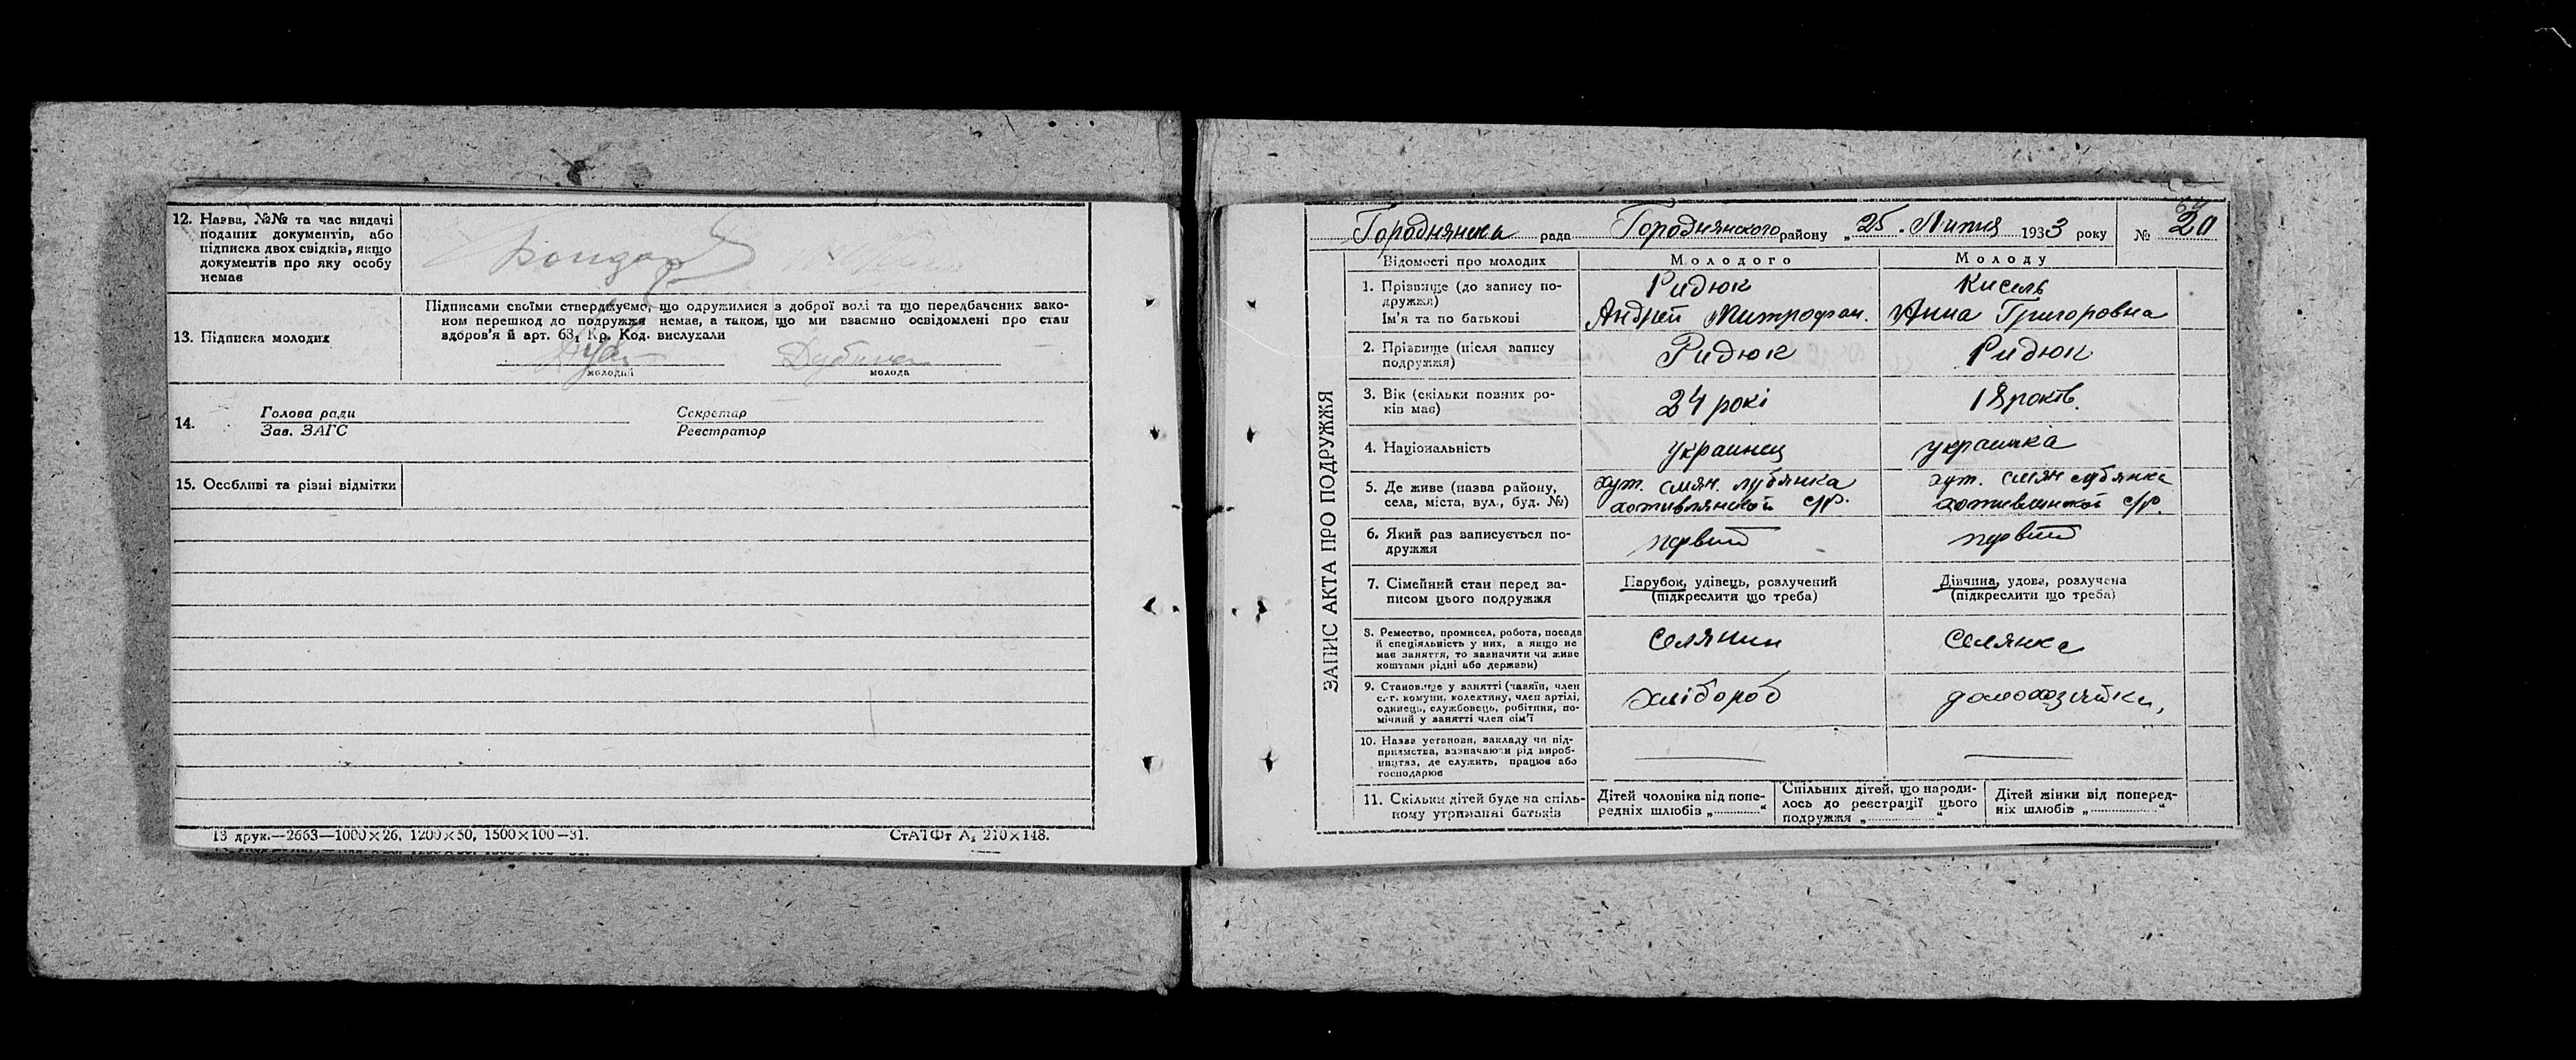 12. Назва, №№ та час видачі
поданих документів, або
підписка двох свідків, якщо
документів про яку особу
немає
Бондар
13. Підписка молодих
Підписами своїми стверджуємо, що одружилися з доброї волі та що передбачених зако-
ном перешкод до подружжя немає, а також, що ми взаємно освідомлені про стан
здоров'я й арт. 63, Кр. Код. вислухали
молодий
молода
14.
Голова ради
Зав. ЗАГС
Секретар
Реєстратор
15. Особливі та різні відмітки
13 друк.—2663—1000×26, 1200×50, 1500×100—31.
СтАТФт А₅ 210×148.
ЗАПИС АКТА ПРО ПОДРУЖЖЯ
Городнянська рада Городнянского району „25. Липня 1933 року № 20
Відомості про молодих
Молодого
Молоду
1. Прізвище (до запису по-
дружжя)
Ім'я та по батькові
Ридюк
Андрей Митрофан.
Кисель
Анна Григоровна
2. Прізвище (після запису
подружжя)
Ридюк
Ридюк
3. Вік (скільки повних ро-
ків має)
24 рокі
18 років.
4. Національність
украинец
украинка
5. Де живе (назва району,
села, міста, вул., буд. №)
хут. смян. лубянка
хотивлянской с/р.
хут. смян лубянка
хотивлянской с/р.
6. Який раз записується по-
дружжя
первий
первий
7. Сімейний стан перед за-
писом цього подружжя
Парубок, удівець, розлучений
(підкреслити що треба)
Дівчина, удова, розлучена
(підкреслити що треба)
8. Ремество, промисел, робота, посада
й спеціяльність у них, а якщо не
має заняття, то зазначити чи живе
коштами рідні або держави)
Селянин
Селянка
9. Становище у занятті (хазяїн, член
с.-г. комуни, колективу, член артілі,
одинець, службовець, робітник, по-
мічний у занятті член сім'ї
хлібороб
домохозяйка,
10. Назва установи, закладу чи під-
приємства, зазначаючи рід вироб-
ництва, де служить, працює або
господарює
11. Скільки дітей буде на спіль-
ному утриманні батьків
Дітей чоловіка від попе-
редніх шлюбів „............“
Спільних дітей, що народи-
лось до реєстрації цього
подружжя „............“
Дітей жінки від поперед-
ніх шлюбів „............“